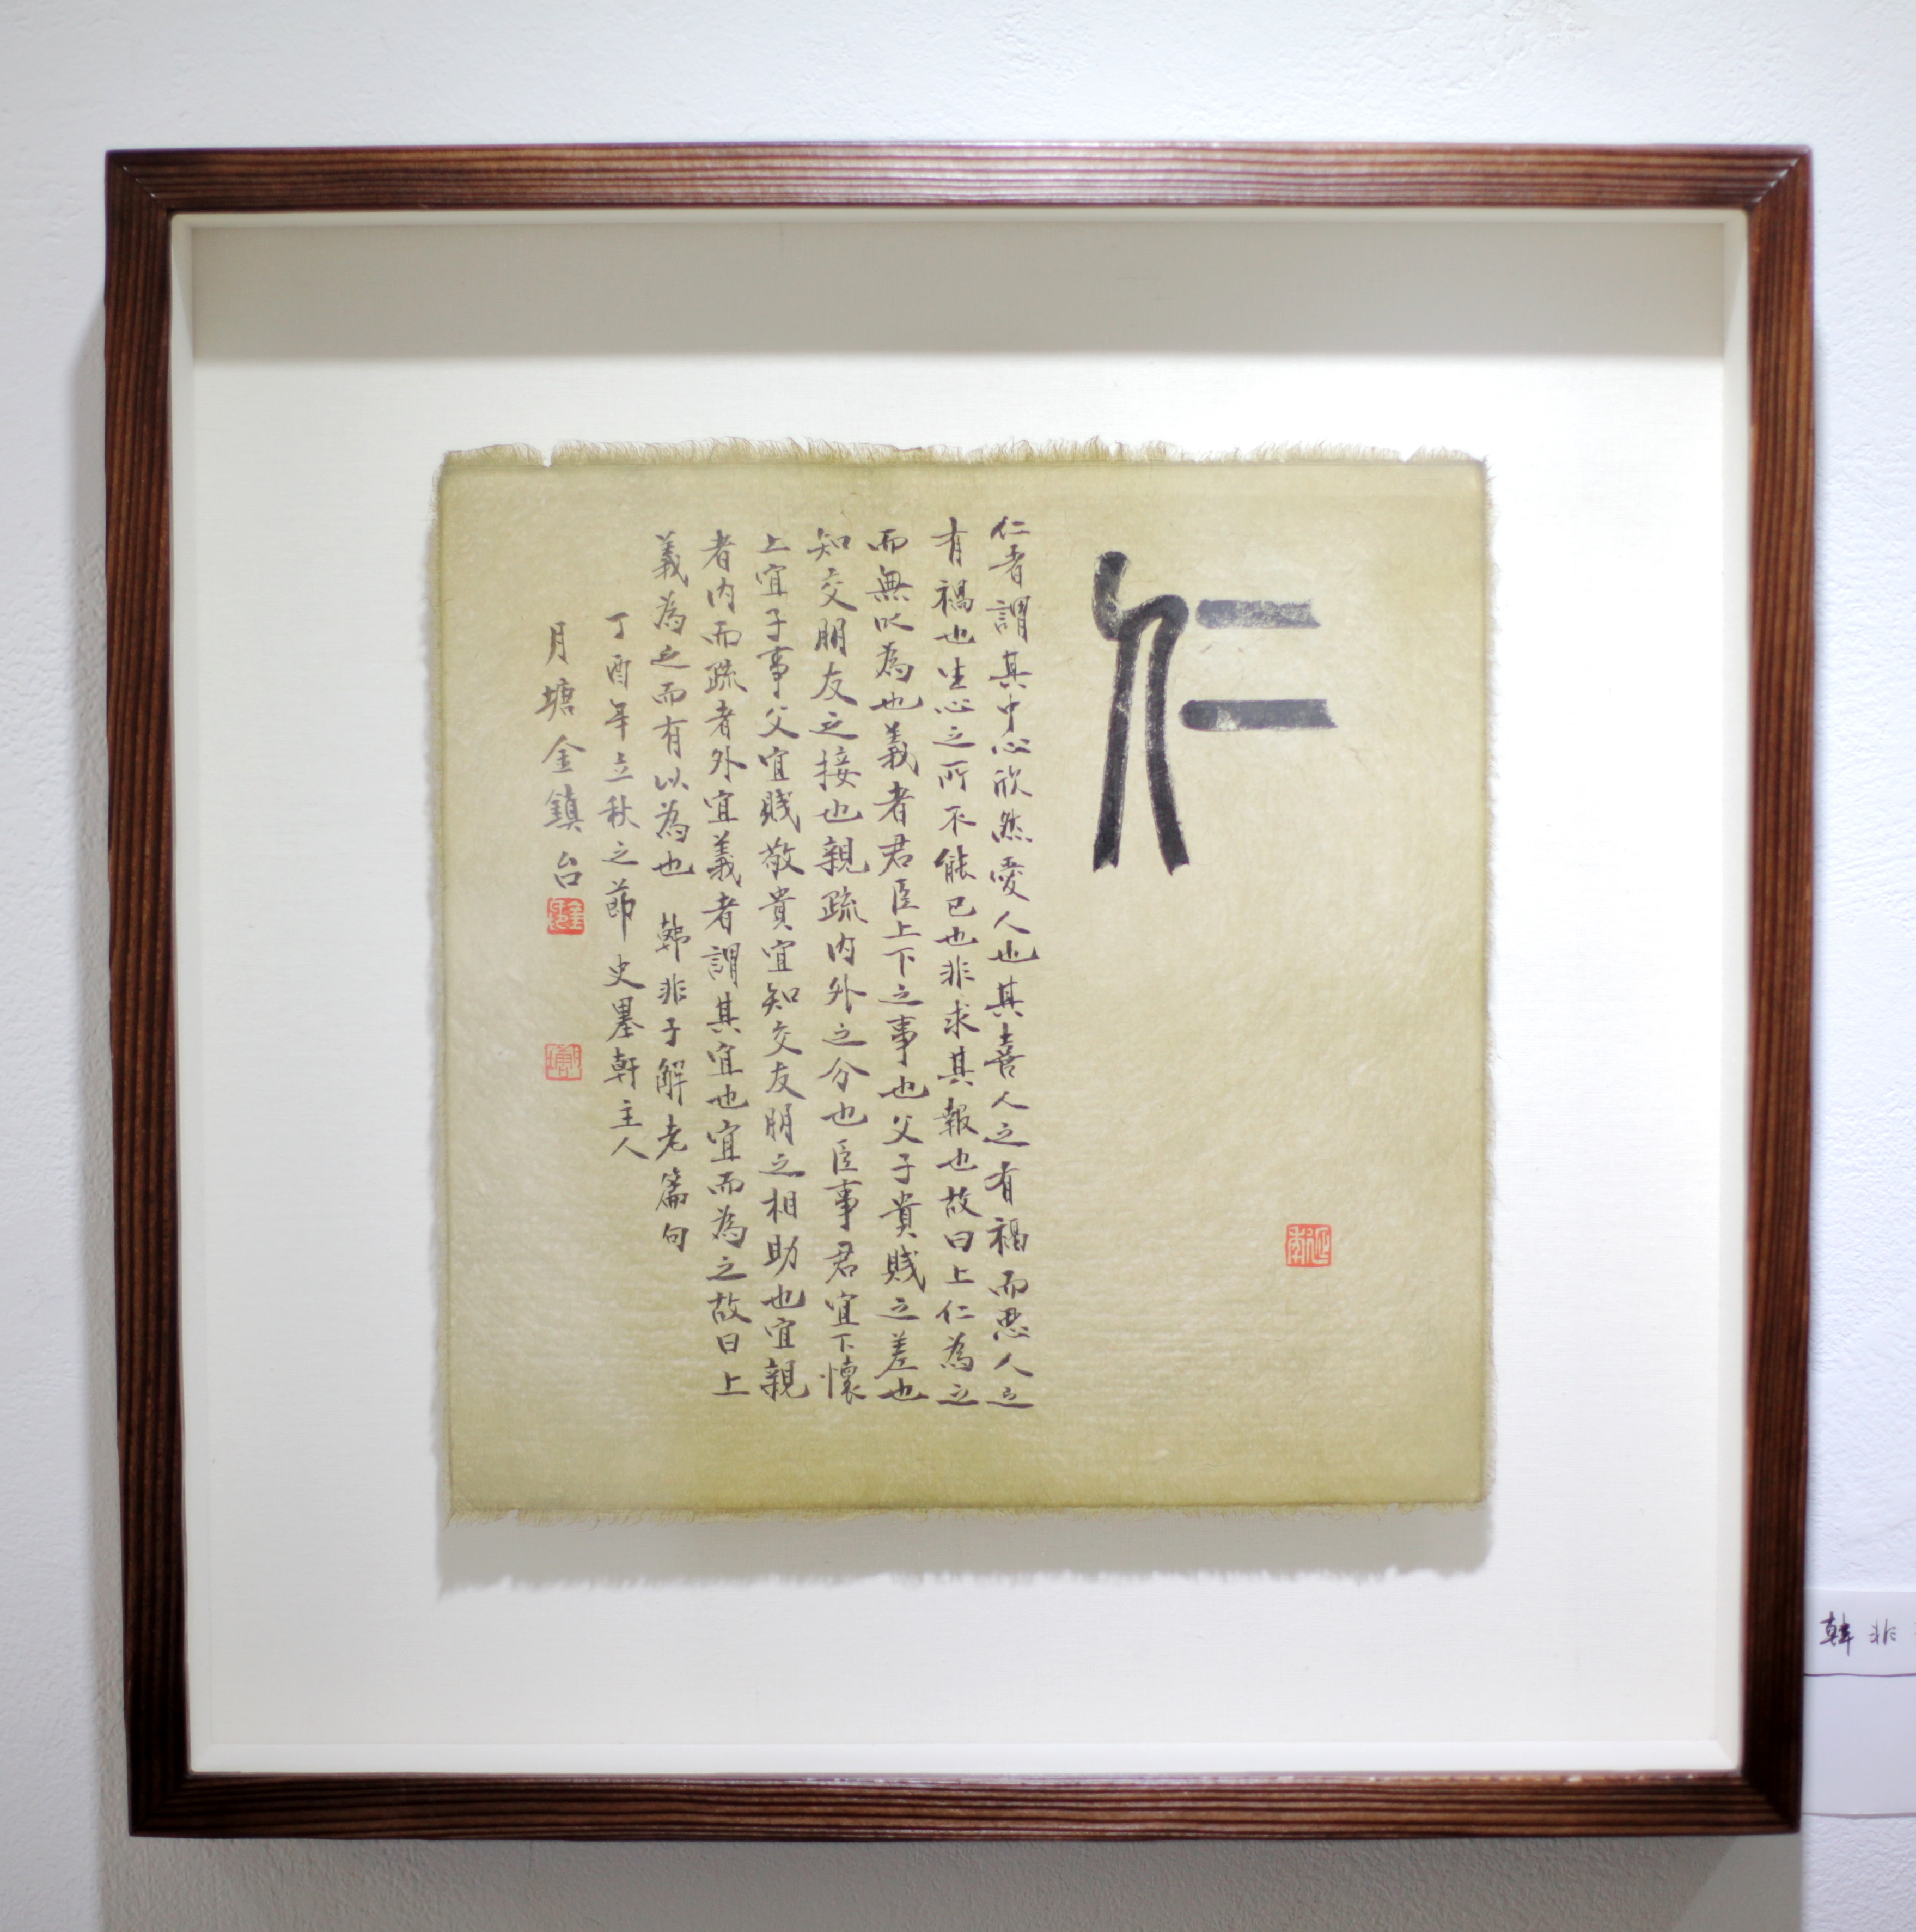 仁
仁者謂其中心欣然愛人也其喜人之有福而惡人之
有禍也生心之所不能已也非求其報也故曰上仁為之
而無以為也義者君臣上下之事也父子貴賤之差也
知交朋友之接也親疏内外之分也臣事君宜下懷
上宜子事父宜賤敬貴宜知交友朋之相助也宜親
者内而疏者外宜義者謂其宜也宜而為之故曰上
義為之而有以為也 韓非子解老篇句
丁酉年立秋之節史墨軒主人
月塘金鎮台
韓非